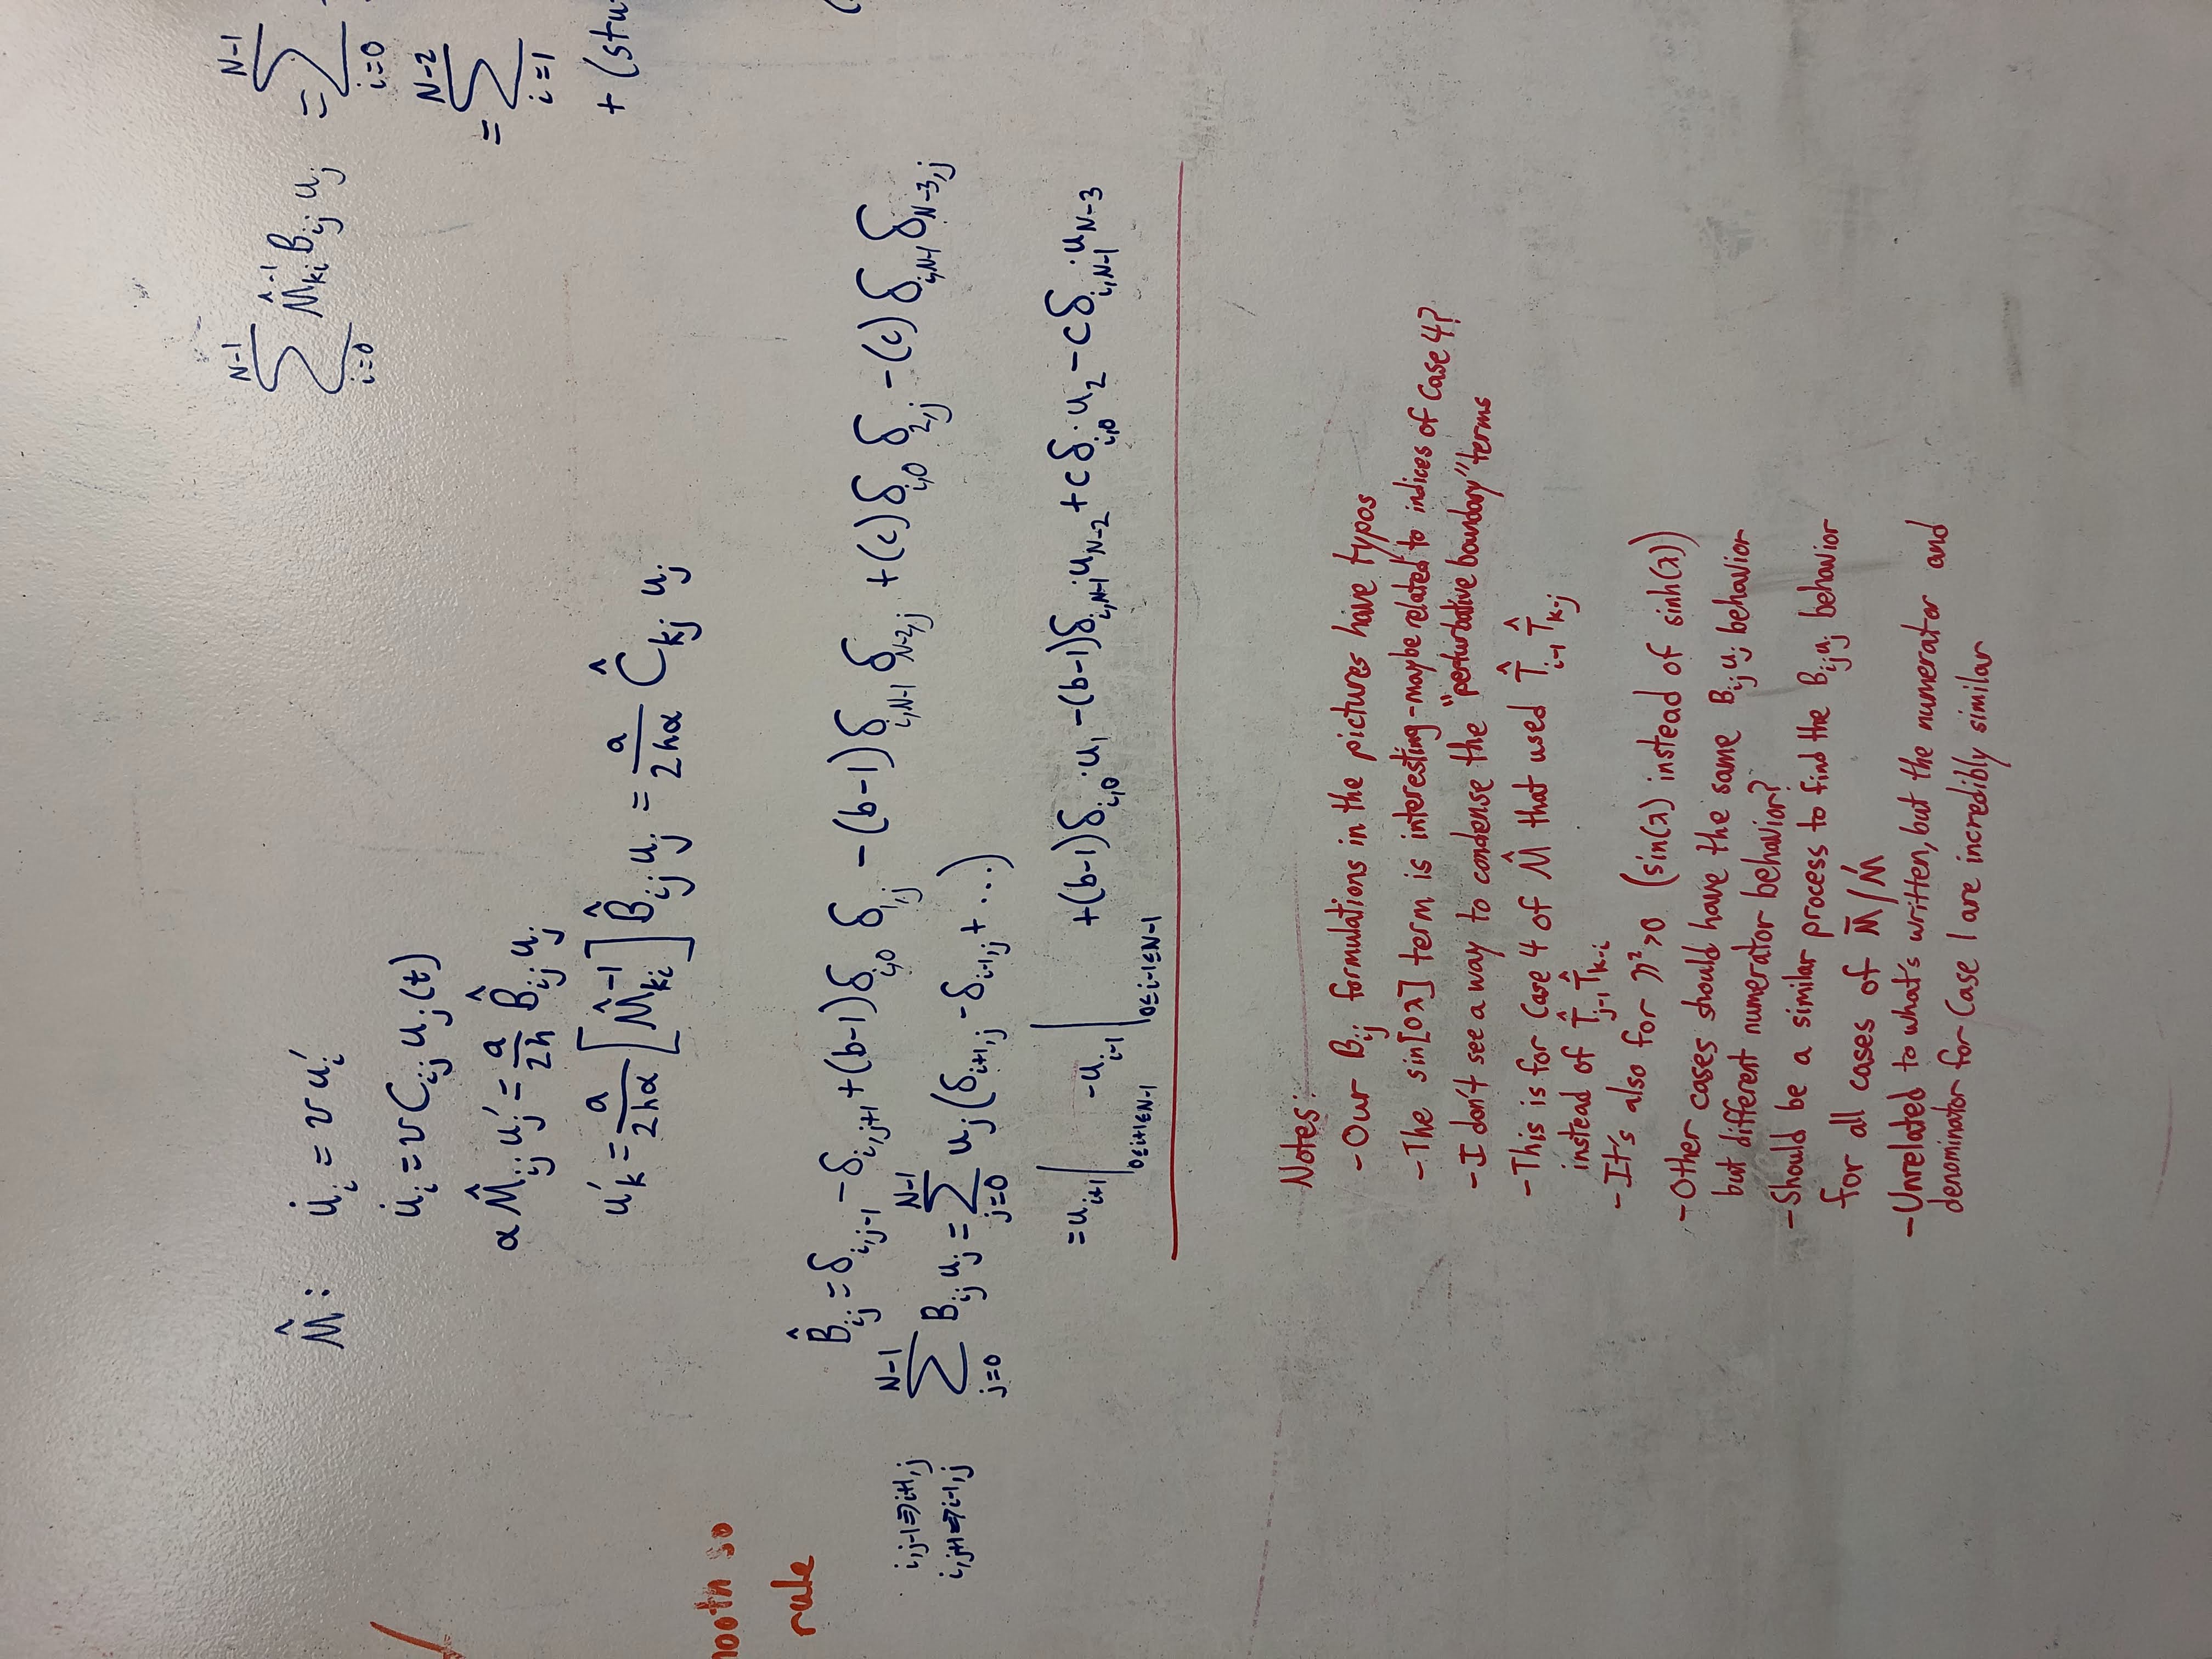 M̂: u̇_i = v u_i′
u̇_i = v C_ij u_j(t)
α M̂_ij u_j′ = a/2h B̂_ij u_j
u′_k = a/2hα [M̂_ki^-1] B̂_ij u_j = a/2hα Ĉ_kj u_j
∑_{i=0}^{N-1} M̂_ki^-1 B_ij u_j = ∑_{i=0}^{N-1}
= ∑_{i=1}^{N-2}
+ (stu
mooth so
rule
B̂_ij = δ_{i,j-1} - δ_{i,j+1} + (b-1) δ_{i,0} δ_{1,j} - (b-1) δ_{i,N-1} δ_{N-2,j} + (c) δ_{i,0} δ_{2,j} - (c) δ_{i,N-1} δ_{N-3,j}
i,j-1 ⇒ i+1,j
i,j+1 ⇒ i-1,j
∑_{j=0}^{N-1} B_ij u_j = ∑_{j=0}^{N-1} u_j (δ_{i+1,j} - δ_{i-1,j} + ...)
= u_{i+1} |_{0≤i+1≤N-1} - u_{i-1} |_{0≤i-1≤N-1} + (b-1) δ_{i,0} · u_1 - (b-1) δ_{i,N-1} · u_{N-2} + c δ_{i,0} · u_2 - c δ_{i,N-1} · u_{N-3}
Notes:
- Our B_ij formulations in the pictures have typos
- The sin[0λ] term is interesting - maybe related to indices of Case 4?
- I don't see a way to condense the "perturbative boundary" terms
- This is for Case 4 of M̂ that used T̂_{i-1} T̂_{k-j}
instead of T̂_{j-1} T̂_{k-i}
- It's also for η²>0 (sin(λ) instead of sinh(λ))
- Other cases should have the same B_ij u_j behavior
but different numerator behavior?
- Should be a similar process to find the B_ij u_j behavior
for all cases of M̄/Ḿ
- Unrelated to what's written, but the numerator and
denominator for Case 1 are incredibly similar